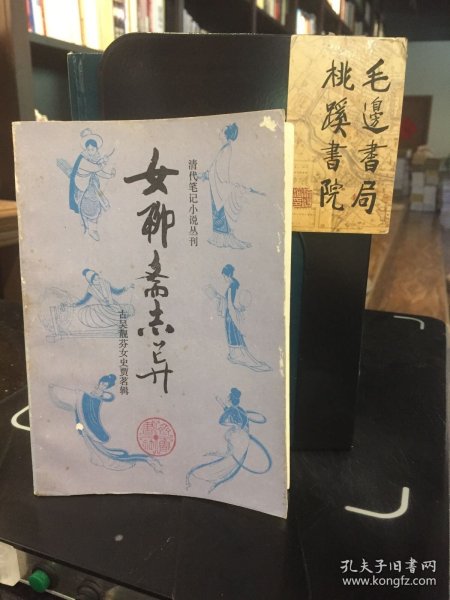 清代笔记小说丛刊
女聊斋志异
古吴靓芬女史贾茗辑
毛邊書局
桃蹊書院
孔夫子旧书网
www.kongfz.com